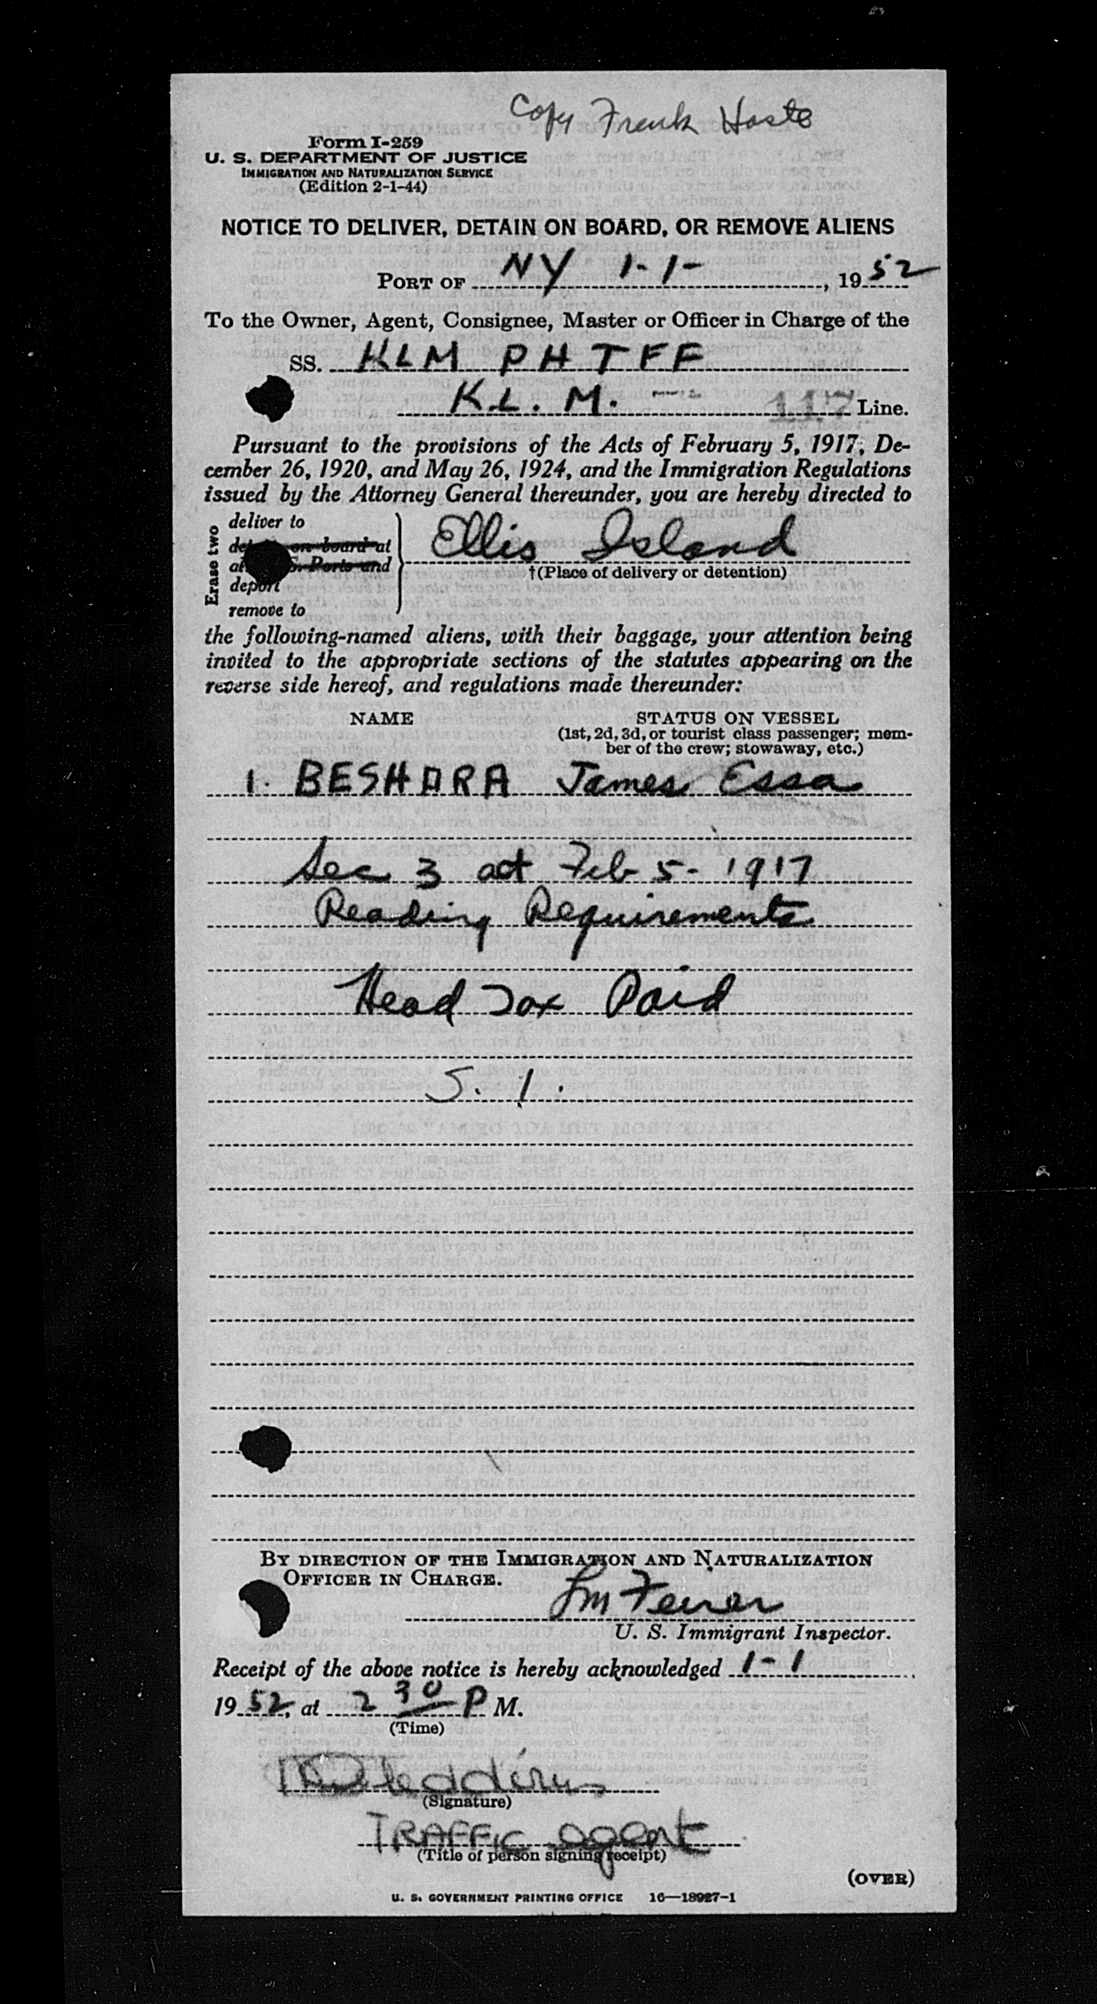 Copy Frank Haste
Form I-259
U. S. DEPARTMENT OF JUSTICE
IMMIGRATION AND NATURALIZATION SERVICE
(Edition 2-1-44)
NOTICE TO DELIVER, DETAIN ON BOARD, OR REMOVE ALIENS
PORT OF NY 1-1-, 1952
To the Owner, Agent, Consignee, Master or Officer in Charge of the
SS. KLM PH TFF
K.L.M. -- 117 Line.
Pursuant to the provisions of the Acts of February 5, 1917, De-
cember 26, 1920, and May 26, 1924, and the Immigration Regulations
issued by the Attorney General thereunder, you are hereby directed to
Erase two
deliver to
on board at
S. Ports and
deport
remove to
Ellis Island
†(Place of delivery or detention)
the following-named aliens, with their baggage, your attention being
invited to the appropriate sections of the statutes appearing on the
reverse side hereof, and regulations made thereunder:
NAME STATUS ON VESSEL
(1st, 2d, 3d, or tourist class passenger; mem-
ber of the crew; stowaway, etc.)
1. BESHARA James Essa
Sec 3 act Feb 5 - 1917
Reading Requirements
Head Tax Paid
S. I.
BY DIRECTION OF THE IMMIGRATION AND NATURALIZATION
OFFICER IN CHARGE.
U. S. Immigrant Inspector.
Receipt of the above notice is hereby acknowledged 1-1
1952, at 2 30 P M.
(Time)
(Signature)
TRAFFIC agent
(Title of person signing receipt)
(OVER)
U. S. GOVERNMENT PRINTING OFFICE 16—18927-1